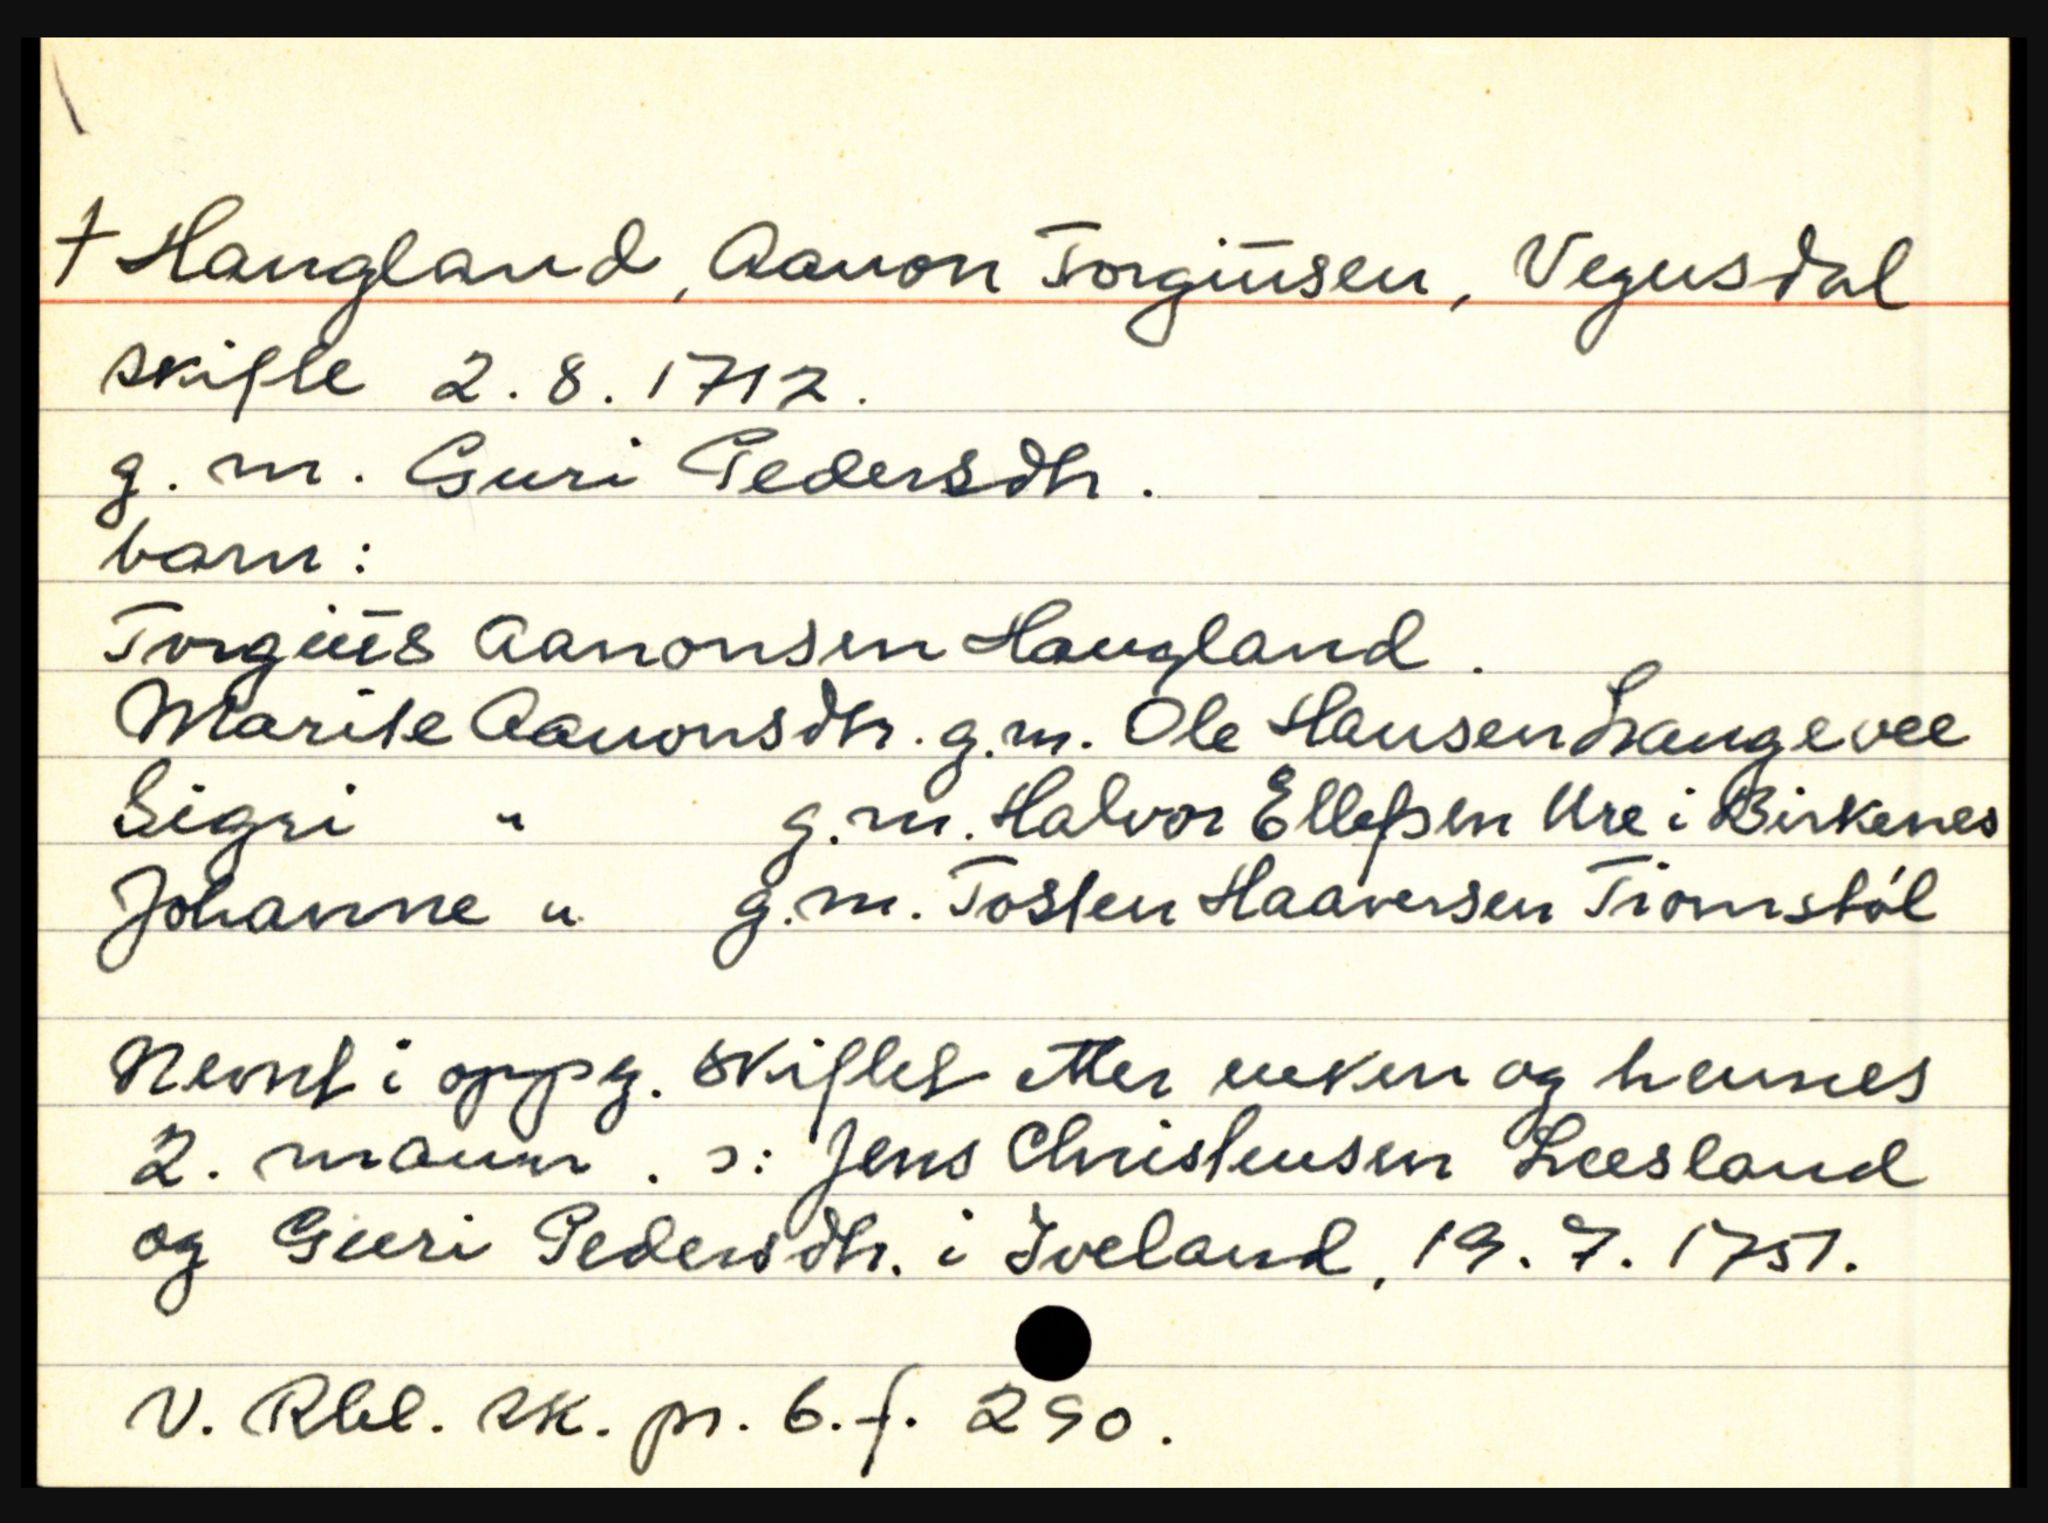 † Haugland, Aanon Torgiusen, Vegusdal
skifte 2.8.1712.
g. m. Guri Pedersdtr.
barn:
Torgius Aanonsen Haugland.
Marite Aanonsdtr. g.m. Ole Hansen Langevee
Sigri " g.m. Halvor Elleſsen Ure i Birkenes
Johanne " g.m. Tosten Haaversen Tiomstøl
Nevnt i oppg. skiftet etter enken og hennes
2. mann. ɔ: Jens Christensen Leesland
og Guri Pedersdtr. i Iveland, 19.7.1751.
V. Rbl. sk. pr. 6. f. 290.